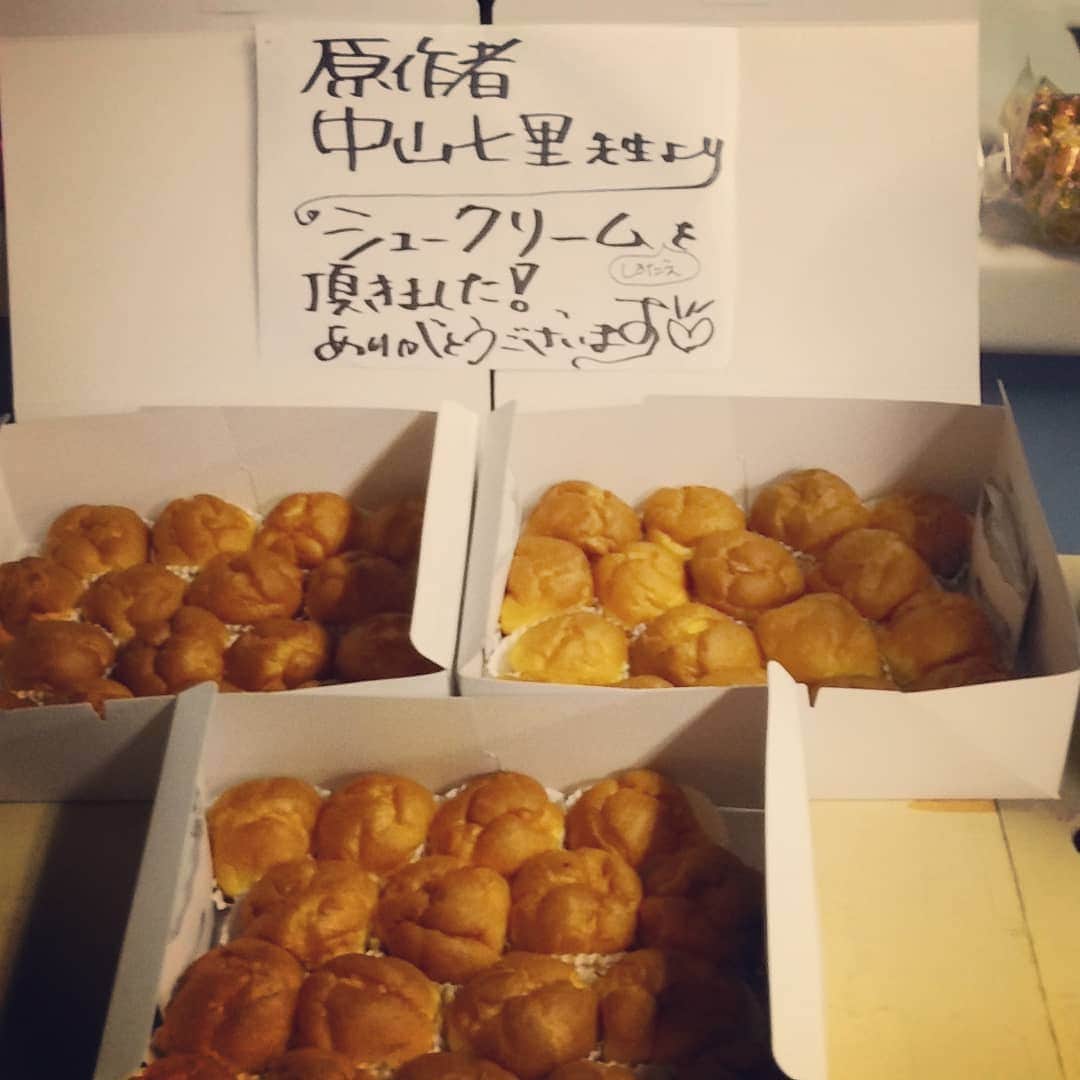 原作者
中山七里先生より
シュークリームを
しろたえ
頂きました!
ありがとうございます